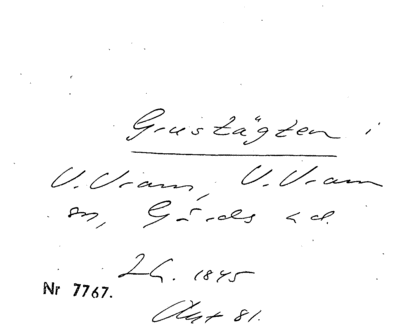 Grustägten i
V. Vram, V. Vram
sn, Gärds hd.
2h. 1845
Nr 7767.
Akt 81.